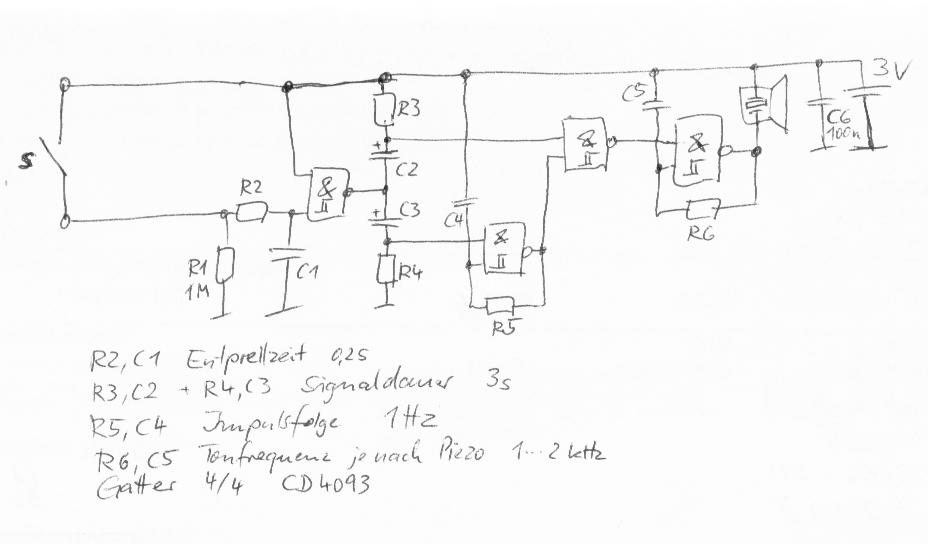 3V
C5
R3
C6
100n
&
&
+
C2
S
R2
&
C3
+
C4
&
R6
R1
1M
C1
R4
R5
R2, C1 Entprellzeit 0,2s
R3, C2 + R4, C3 Signaldauer 3s
R5, C4 Impulsfolge 1Hz
R6, C5 Tonfrequenz je nach Piezo 1...2 kHz
Gatter 4/4 CD4093